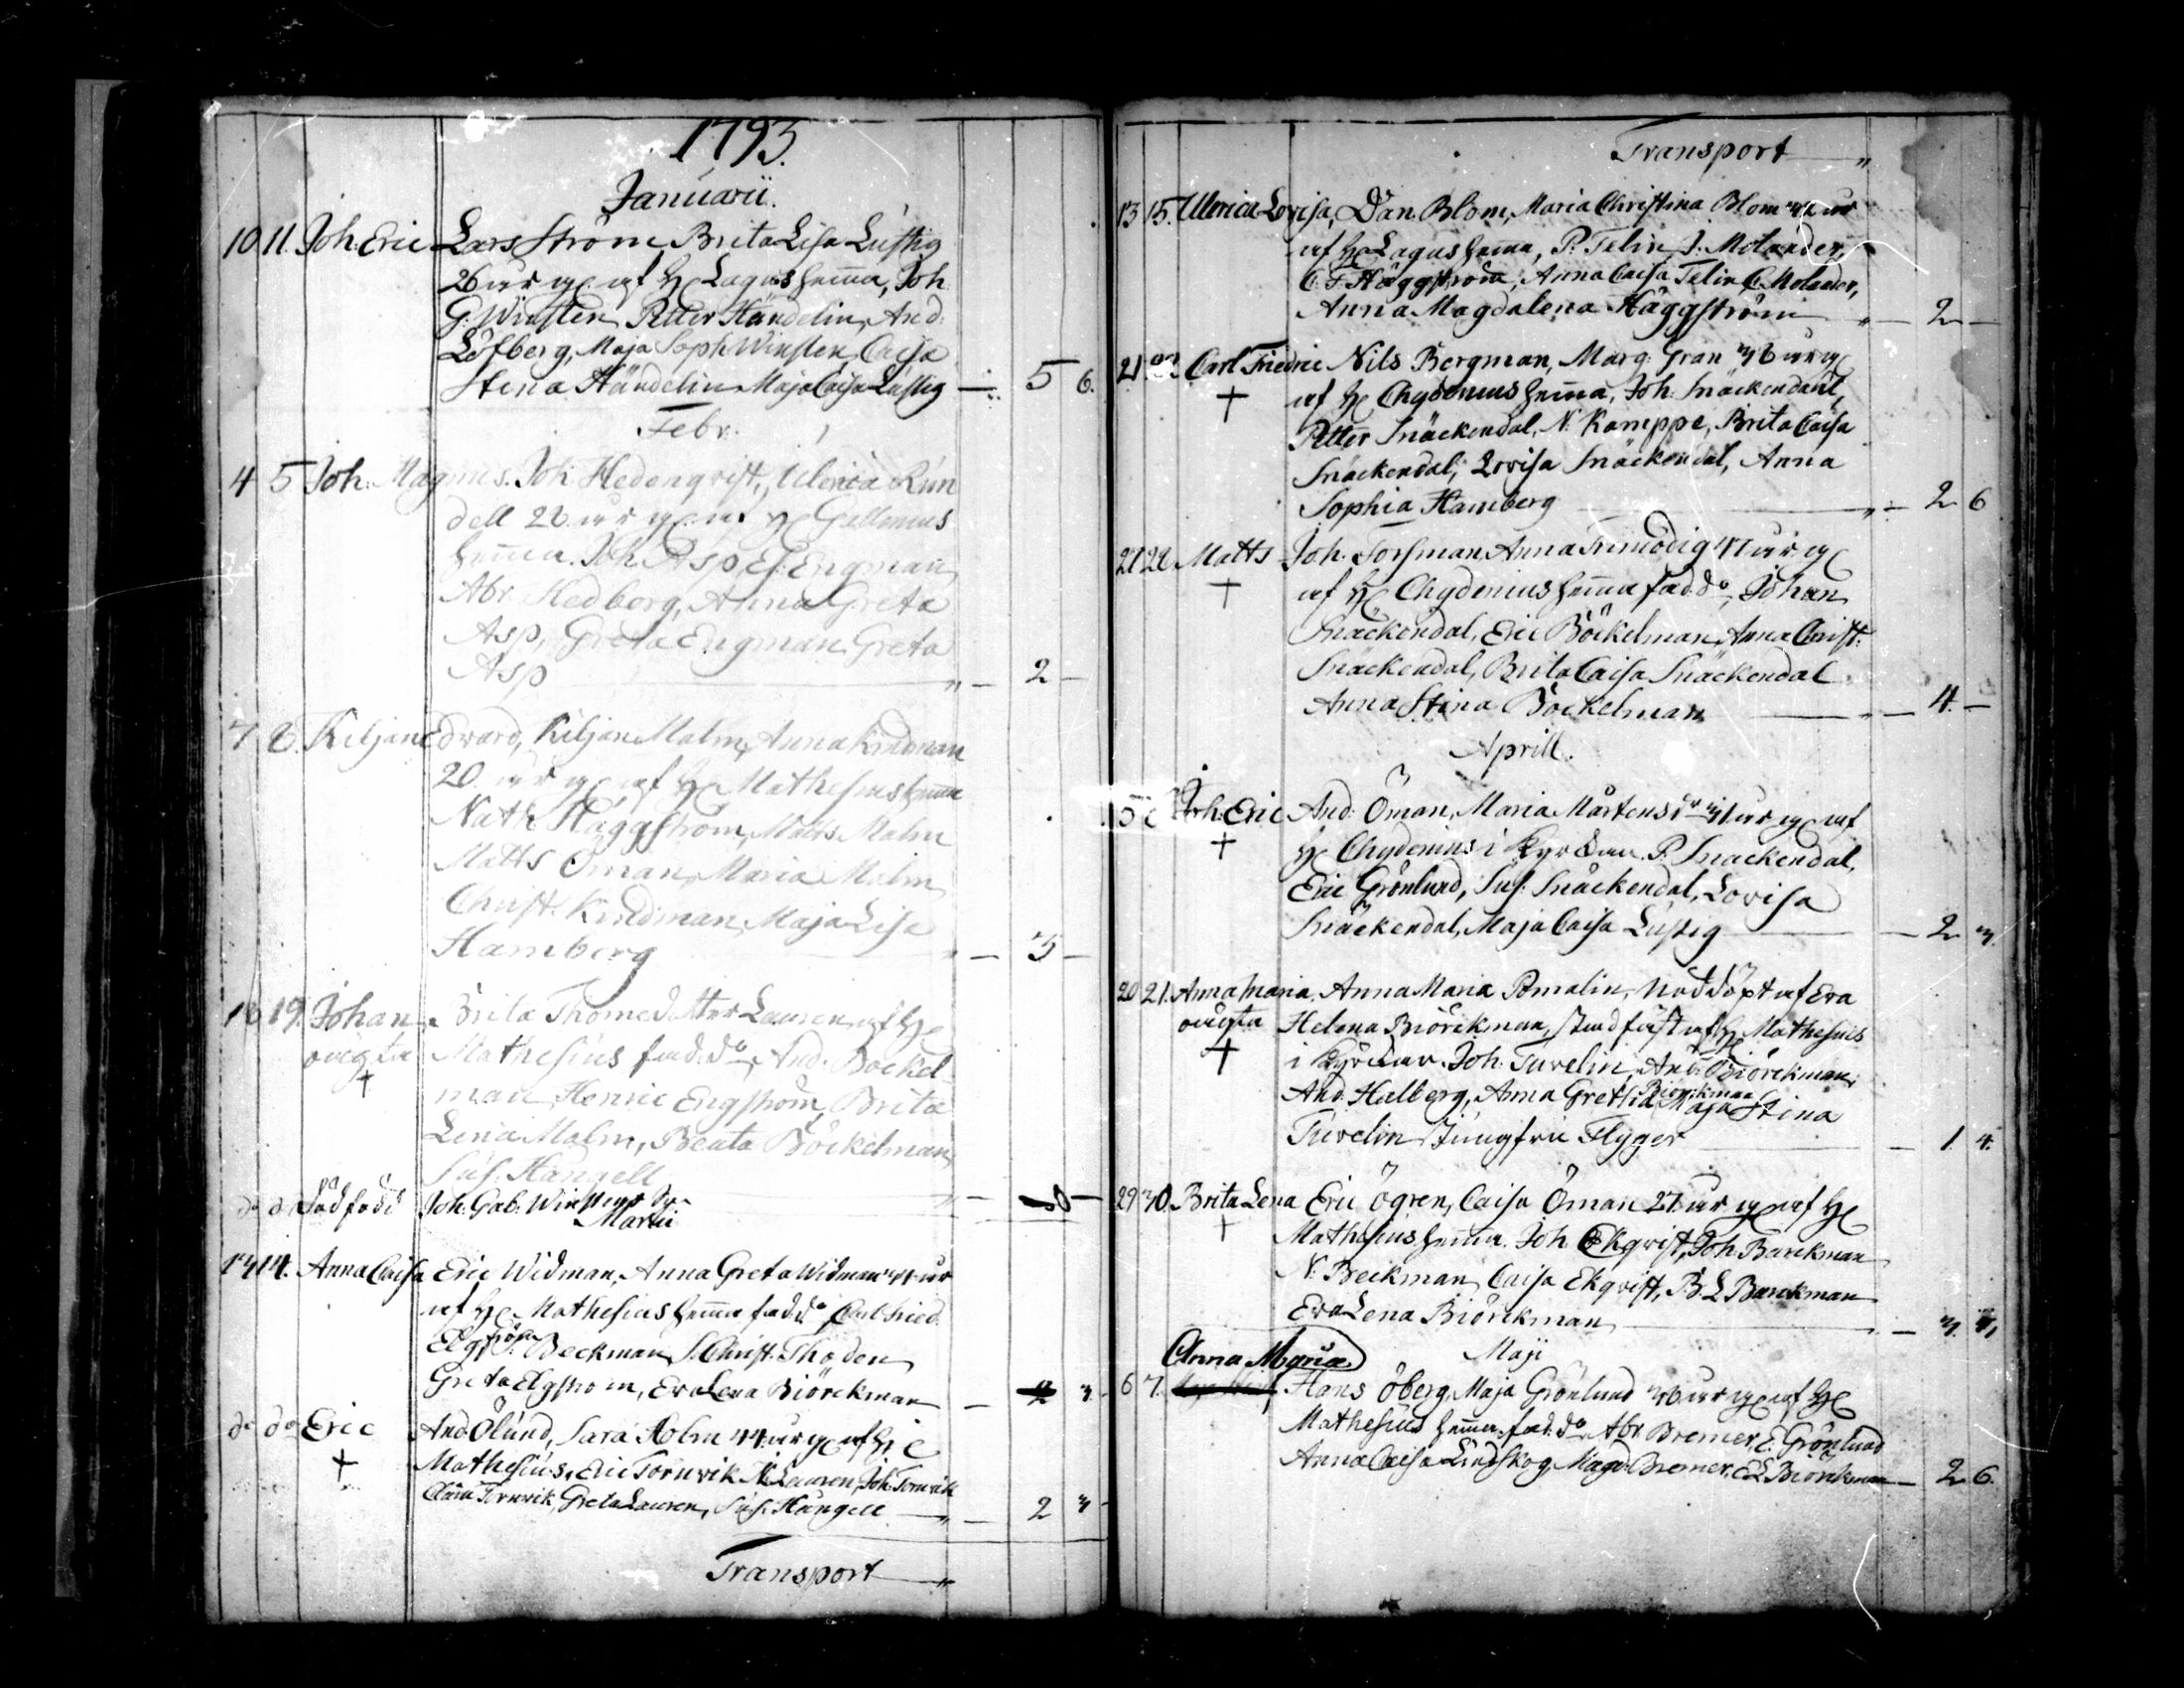 1793.
Januarii.
10 11. Joh: Eric Lars Ström, Brita Lisa Lustig
26 år g. af H: Lagus hemma, Joh.
G. Winsten, Petter Händelin, And:
Löfberg, Maja Soph Winsten, Caisa
Stina Händelin, Maja Caisa Lustig 5 6.
Febr.
4 5 Joh: Magnus. Joh Hedenqvist, Ulrica Run
dell 28 år g. af H: Gellenius
hemma. Joh Asp, E. Engman
Abr Hedberg, Anna Greta
Asp, Greta Engman Greta
Asp 2 —
7 8. Kiljan Edvard, Kiljan Malm, Anna Kindman
20 år g. af H: Mathesius hemma
Nath Häggström, Matts Malm
Matts Öman, Maria Malm
Christ. Kindman, Maja Lisa
Hamberg 3 —
18 19. Johan Brita Thomedotter Lauren af H:
oägta Mathesius fad. do, And. Böckel-
† man, Henric Engström, Brita
Lena Malm, Beata Böckelman,
Sus. Hangell
do do Död född Joh. Gab. Winstens
Martii
13 14. Anna Caisa Eric Widman, Anna Greta Widman 31 år
af H: Mathesius hemma fad. do, Carl Fried.
Elgström Beckman, S. Christ. Thoden
Greta Elgström, Eva Lena Biörckman 2 3
do do Eric And Ölund, Sara Holm 44 år g. af H:
† Mathesius. Eric Tornvik, N. Lauren, Joh. Tornvik
Tornvik, Greta Lauren, Sus. Hangell 2 3
Transport
Transport
13 15. Ulrica Lovisa, Dan. Blom, Maria Christina Blom år
af H: Lagus hemma, P. Telin, J. Molander,
C. F. Häggström, Anna Caisa Telin, C. Molander,
Anna Magdalena Häggström 2 —
21 Carl Friedric Nils Bergman, Marg: Gran 36 år g.
† af H: Chydenius hemma, Joh. Snäckendahl,
Petter Snäckendal, N. Kamppe, Brita Caisa
Snäckendal, Lovisa Snäckendal, Anna
Sophia Hamberg 2 6
21 22 Matts Joh. Forsman, Anna Frimodig 41 år g.
† af H: Chydenius hemma fad. do, Johan
Snäckendal, Eric Böckelman, Anna Christ:
Snäckendal, Brita Caisa Snäckendal
Anna Stina Böckelman 4. —
Aprill.
5 6 Joh: Eric And: Öman, Maria Mårtensdr 31 år g. af
† H: Chydenius i Kyrckan. P. Snackendal,
Eric Grönlund, Sus. Snäckendal, Lovisa
Snäckendal, Maja Caisa Lustig 2 3.
20 21. Anna Maria, Anna Maria Pomalin, Nöddöpt af Eva
oägta Helena Biörckman, stadfäst af H: Mathesius
† i Kyrckan. Joh. Turelin, And: Biörckman,
And. Hulberg, Anna Greta Biörckman Maja Stina
Turelin Jungfru Flyger 1. 4.
29 30. Brita Lena Eric Ögren, Caisa Öman 27 år g. af H:
† Mathesius hemma. Joh Ekqvist, Joh Barckman
N. Beckman, Caisa Ekqvist, B. L Barckman
Eva Lena Biörckman 3.
Maji
Anna Maria
6 7. Hans Öberg, Maja Grönlund 36 år g. af H:
Mathesius hemma, fad. do Abr Bremer, E. Grönlund
Anna Caisa Lindskog, Magd. Bremer, E L Biörckman 2 6.